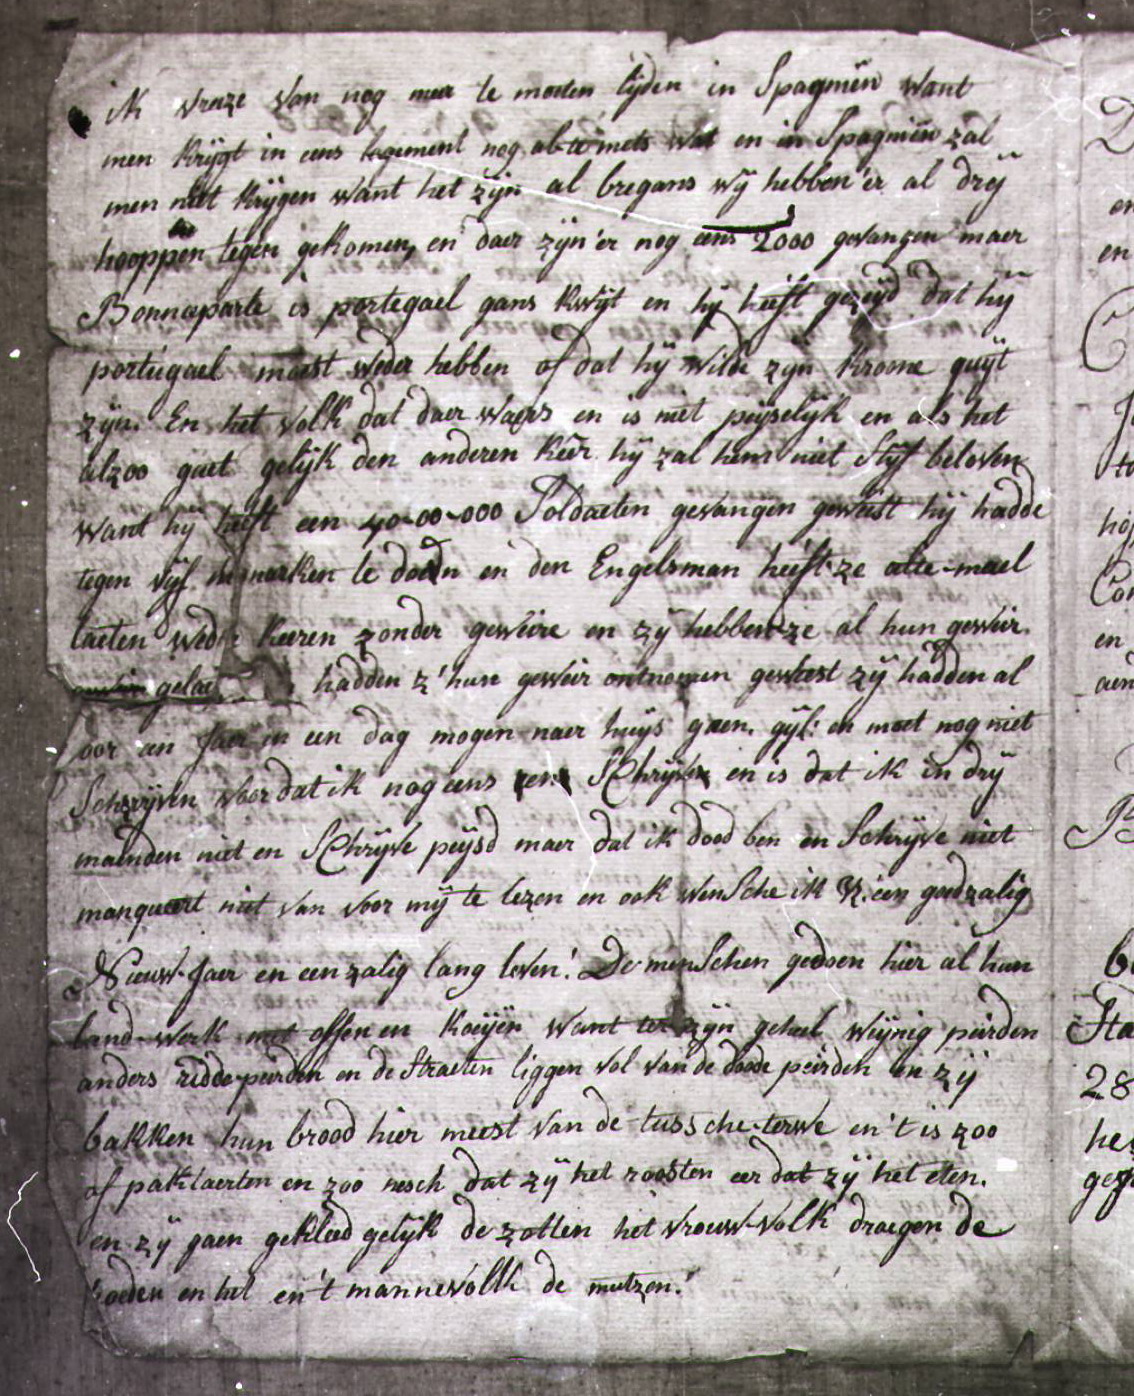 ik vreze van nog meer te moeten lijden in Spagniën want
men krijgt in eens logement nog al-temets wat en in Spagniën zal
men niet krijgen want het zijn al bregans wij hebben'er al drij
hooppen tegen gekomen, en daer zijn'er nog eens 2000 gevangen maer
Bonnaparte is portegael gans kwijt en hij heeft gezeijd dat hij
portugael moest weder hebben of dat hij wilde zijn kroone quijt
zijn. En het volk dat daer waers en is niet peijselijk en als het
alzoo gaet gelijk den anderen keer hij zal hem niet stijf beloven
want hij heeft een 40-00-000 Soldaeten gevangen geweest hij hadde
tegen vijf te doen en den Engelsman heeft ze alle-mael
laeten weder keeren zonder geweire en zij hebben ze al hun geweir
gelaet hadden z'hun geweir ontnomen geweest zij hadden al
oor een Jaer en een dag mogen naer huijs gaen. gijl: en moet nog niet
Schrijven voor dat ik nog eens en Schrijve en is dat ik in drij
maenden niet en Schrijve peijsd maer dat ik dood ben en Schrijve niet
manqueert niet van voor mij te lezen en ook wenSche ik U: een godzalig
Nieuw-Jaer en een zalig lang leven! De menSchen gedoen hier al hun
land-werk met offen en koeijen want ter zijn geheel weijnig peirden
anders ridde-peirden en de Straeten liggen vol van de doode peirden en zij
bakken hun brood hier meest van de tussche-terwe en't is zoo
of paktaerten en zoo nesch dat zij het roosten eer dat zij het eten.
en zij gaen gekleed gelijk de zotten het vrouw-volk draegen de
hoeden en het en't mannevolk de mutzen!
D
en
en
C
J
hop
Con
en
aen
B
be
Sta
28